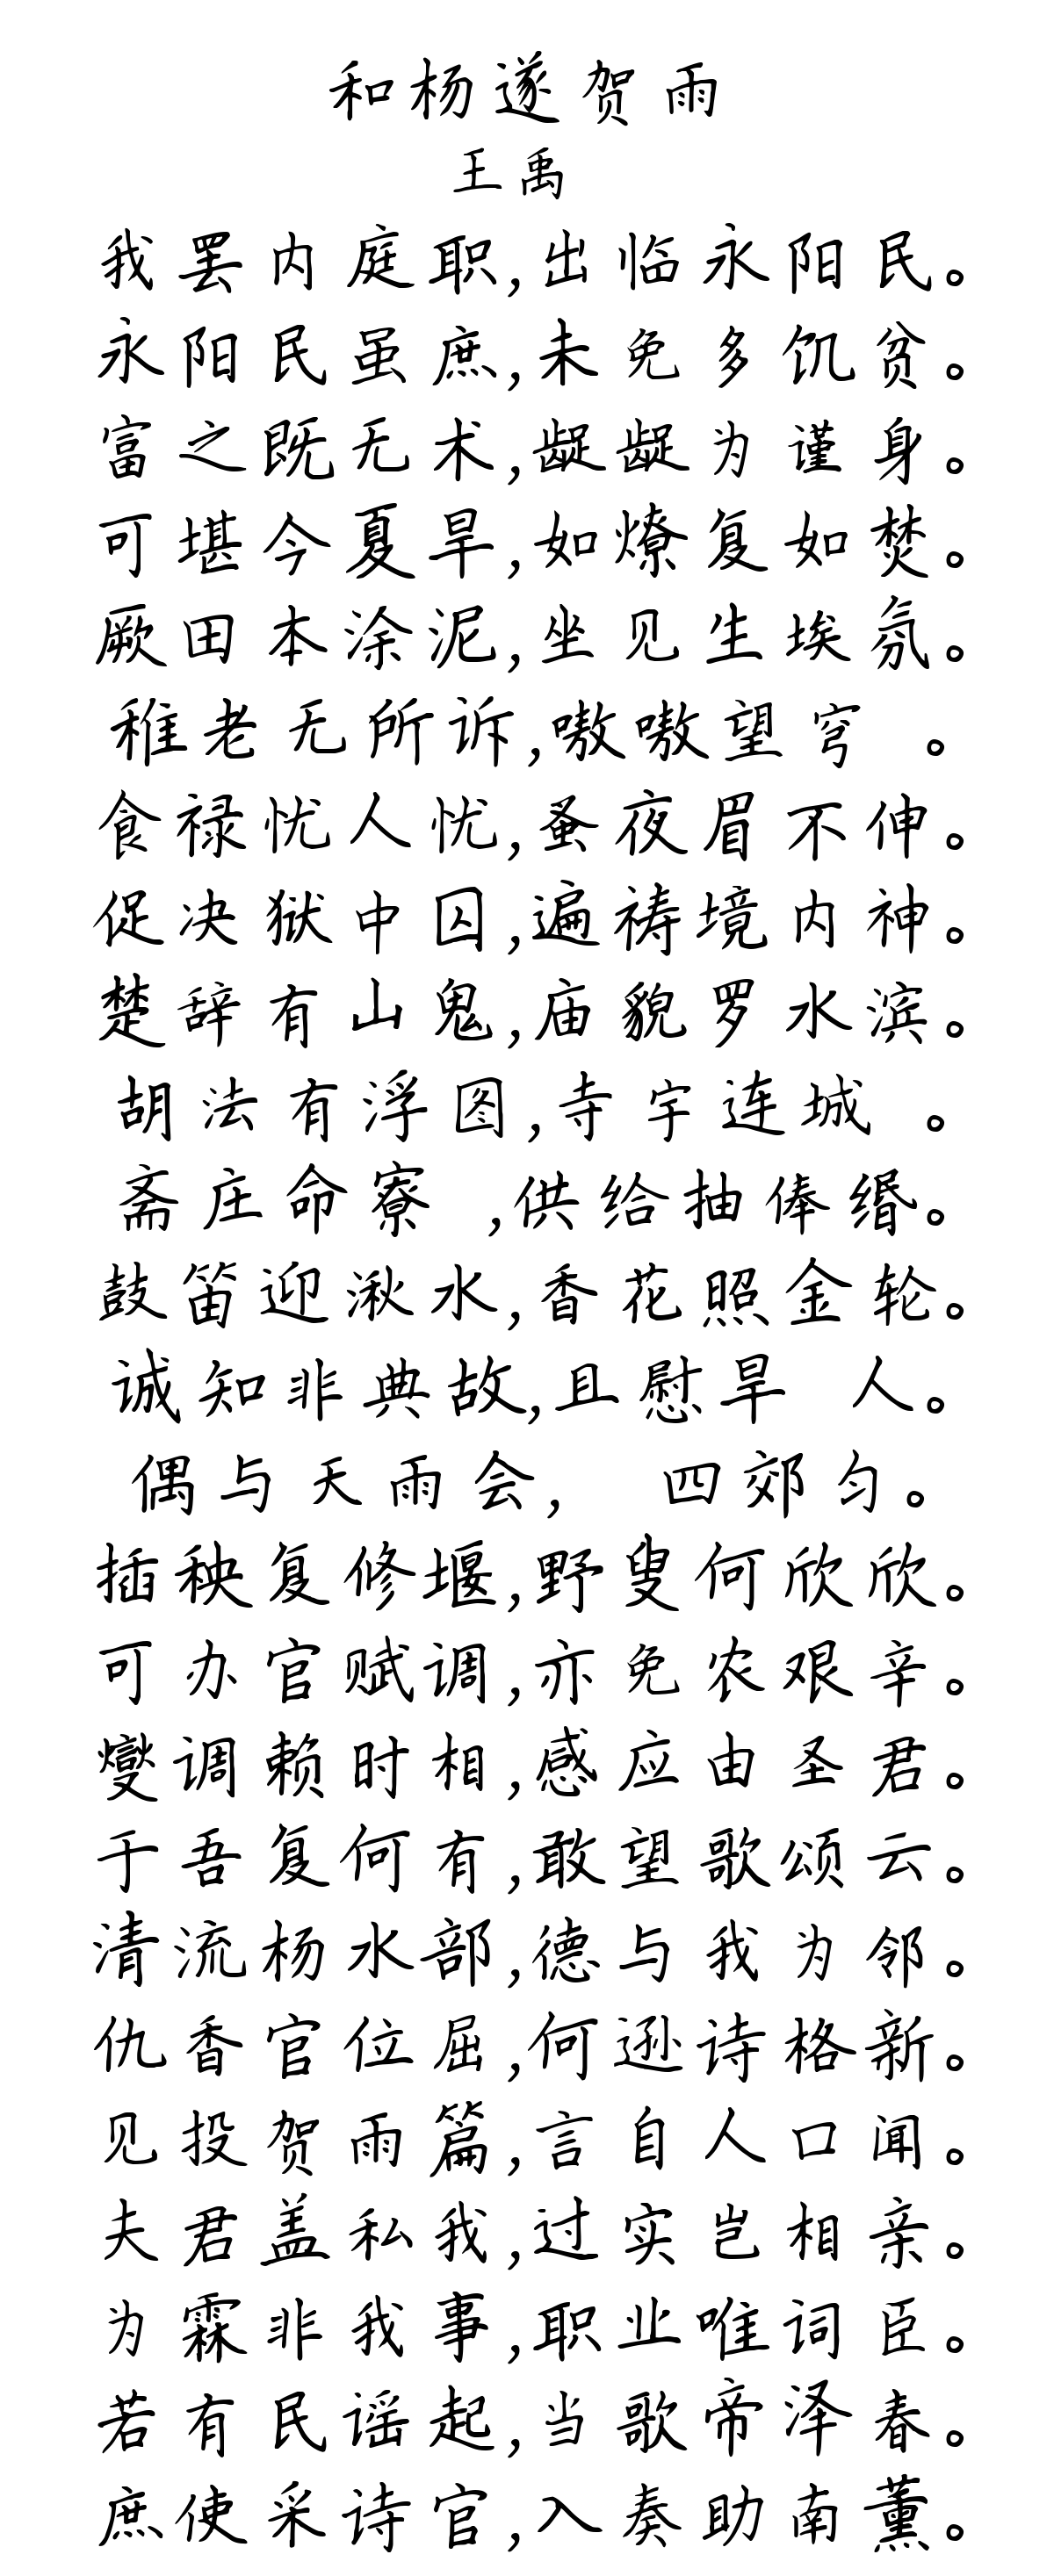 和杨遂贺雨
王禹
我罢内庭职,出临永阳民。
永阳民虽庶,未免多饥贫。
富之既无术,龊龊为谨身。
可堪今夏旱,如燎复如焚。
厥田本涂泥,坐见生埃氛。
稚老无所诉,嗷嗷望穹 。
食禄忧人忧,蚤夜眉不伸。
促决狱中囚,遍祷境内神。
楚辞有山鬼,庙貌罗水滨。
胡法有浮图,寺宇连城 。
斋庄命寮 ,供给抽俸缗。
鼓笛迎湫水,香花照金轮。
诚知非典故,且慰旱 人。
偶与天雨会, 四郊匀。
插秧复修堰,野叟何欣欣。
可办官赋调,亦免农艰辛。
燮调赖时相,感应由圣君。
于吾复何有,敢望歌颂云。
清流杨水部,德与我为邻。
仇香官位屈,何逊诗格新。
见投贺雨篇,言自人口闻。
夫君盖私我,过实岂相亲。
为霖非我事,职业唯词臣。
若有民谣起,当歌帝泽春。
庶使采诗官,入奏助南薰。